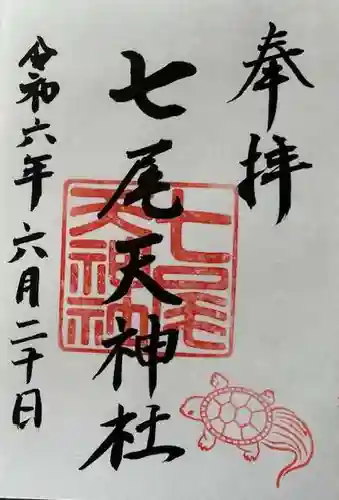 奉拝
七尾天神社
七尾天神社
令和六年 六月二十日